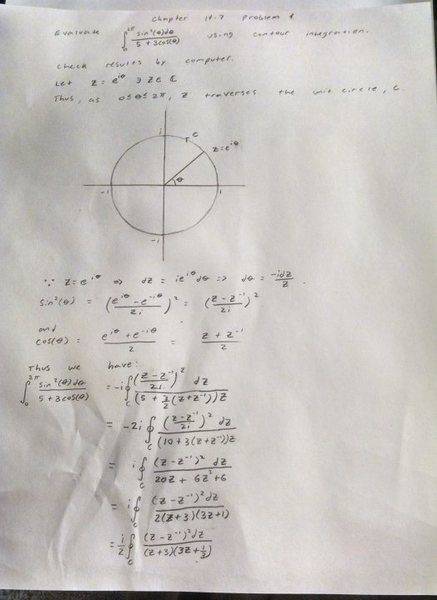 Chapter 14.7 Problem 1
Evaluate ∫₀^{2π} sin²(θ)dθ / (5 + 3cos(θ)) using contour integration.
Check results by computer.
Let z = e^{iθ} ∋ z ∈ ℂ
Thus, as 0≤θ≤2π, z traverses the unit circle, C.
i
C
z=e^{iθ}
θ
-1
1
-i
∵ z = e^{iθ} ⇒ dz = ie^{iθ}dθ ⇒ dθ = -idz/z.
sin²(θ) = ((e^{iθ} - e^{-iθ})/2i)² = ((z - z⁻¹)/2i)²
and
cos(θ) = (e^{iθ} + e^{-iθ})/2 = (z + z⁻¹)/2
Thus we have:
∫₀^{2π} sin²(θ)dθ / (5 + 3cos(θ)) = -i∮_C ((z - z⁻¹)/2i)² dz / (5 + 3/2(z + z⁻¹))z
= -2i ∮_C ((z - z⁻¹)/2i)² dz / (10 + 3(z + z⁻¹))z
= i ∮_C (z - z⁻¹)² dz / 20z + 6z² + 6
= i ∮_C (z - z⁻¹)² dz / 2(z + 3)(3z + 1)
= i/2 ∮_C (z - z⁻¹)² dz / (z + 3)(3z + 1/3)